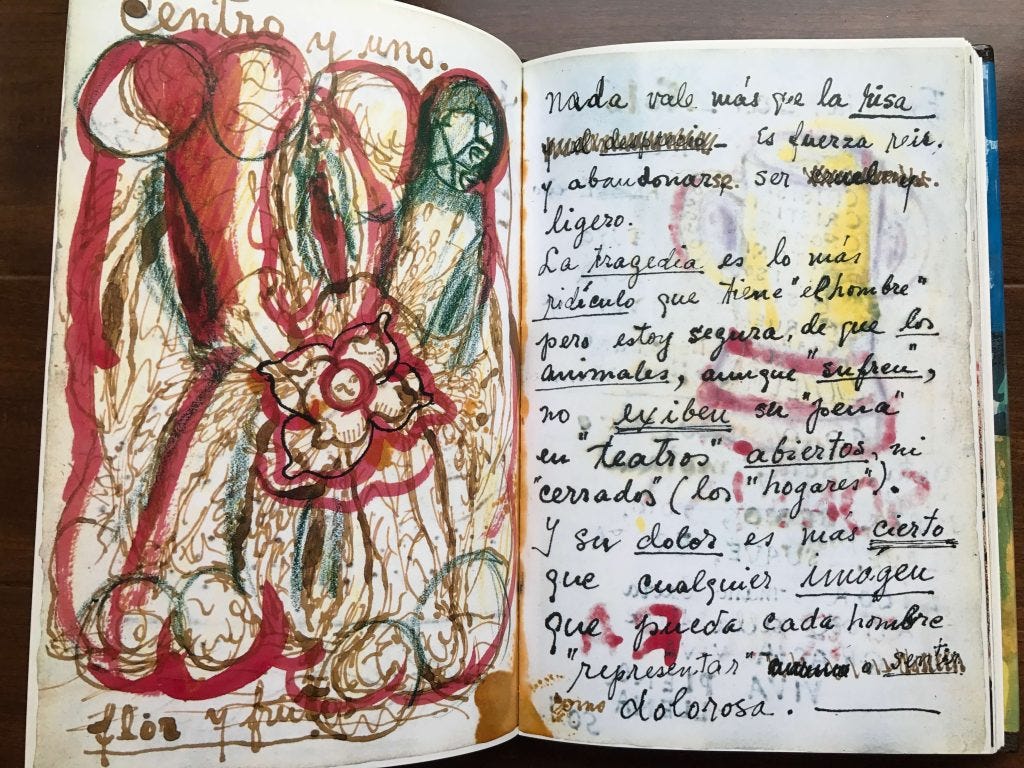 Centro y uno.
flor y frutos
nada vale más que la risa
y el desprecio – Es fuerza reir.
y abandonarse. ser cruel y
ligero.
La tragedia es lo más
ridículo que tiene "el hombre"
pero estoy segura, de que los
animales, aunque "sufren",
no exiben su "pena"
en "teatros" abiertos, ni
"cerrados" (los "hogares").
Y su dolor es más cierto
que cualquier imagen
que pueda cada hombre
"representar" sentir
como dolorosa.